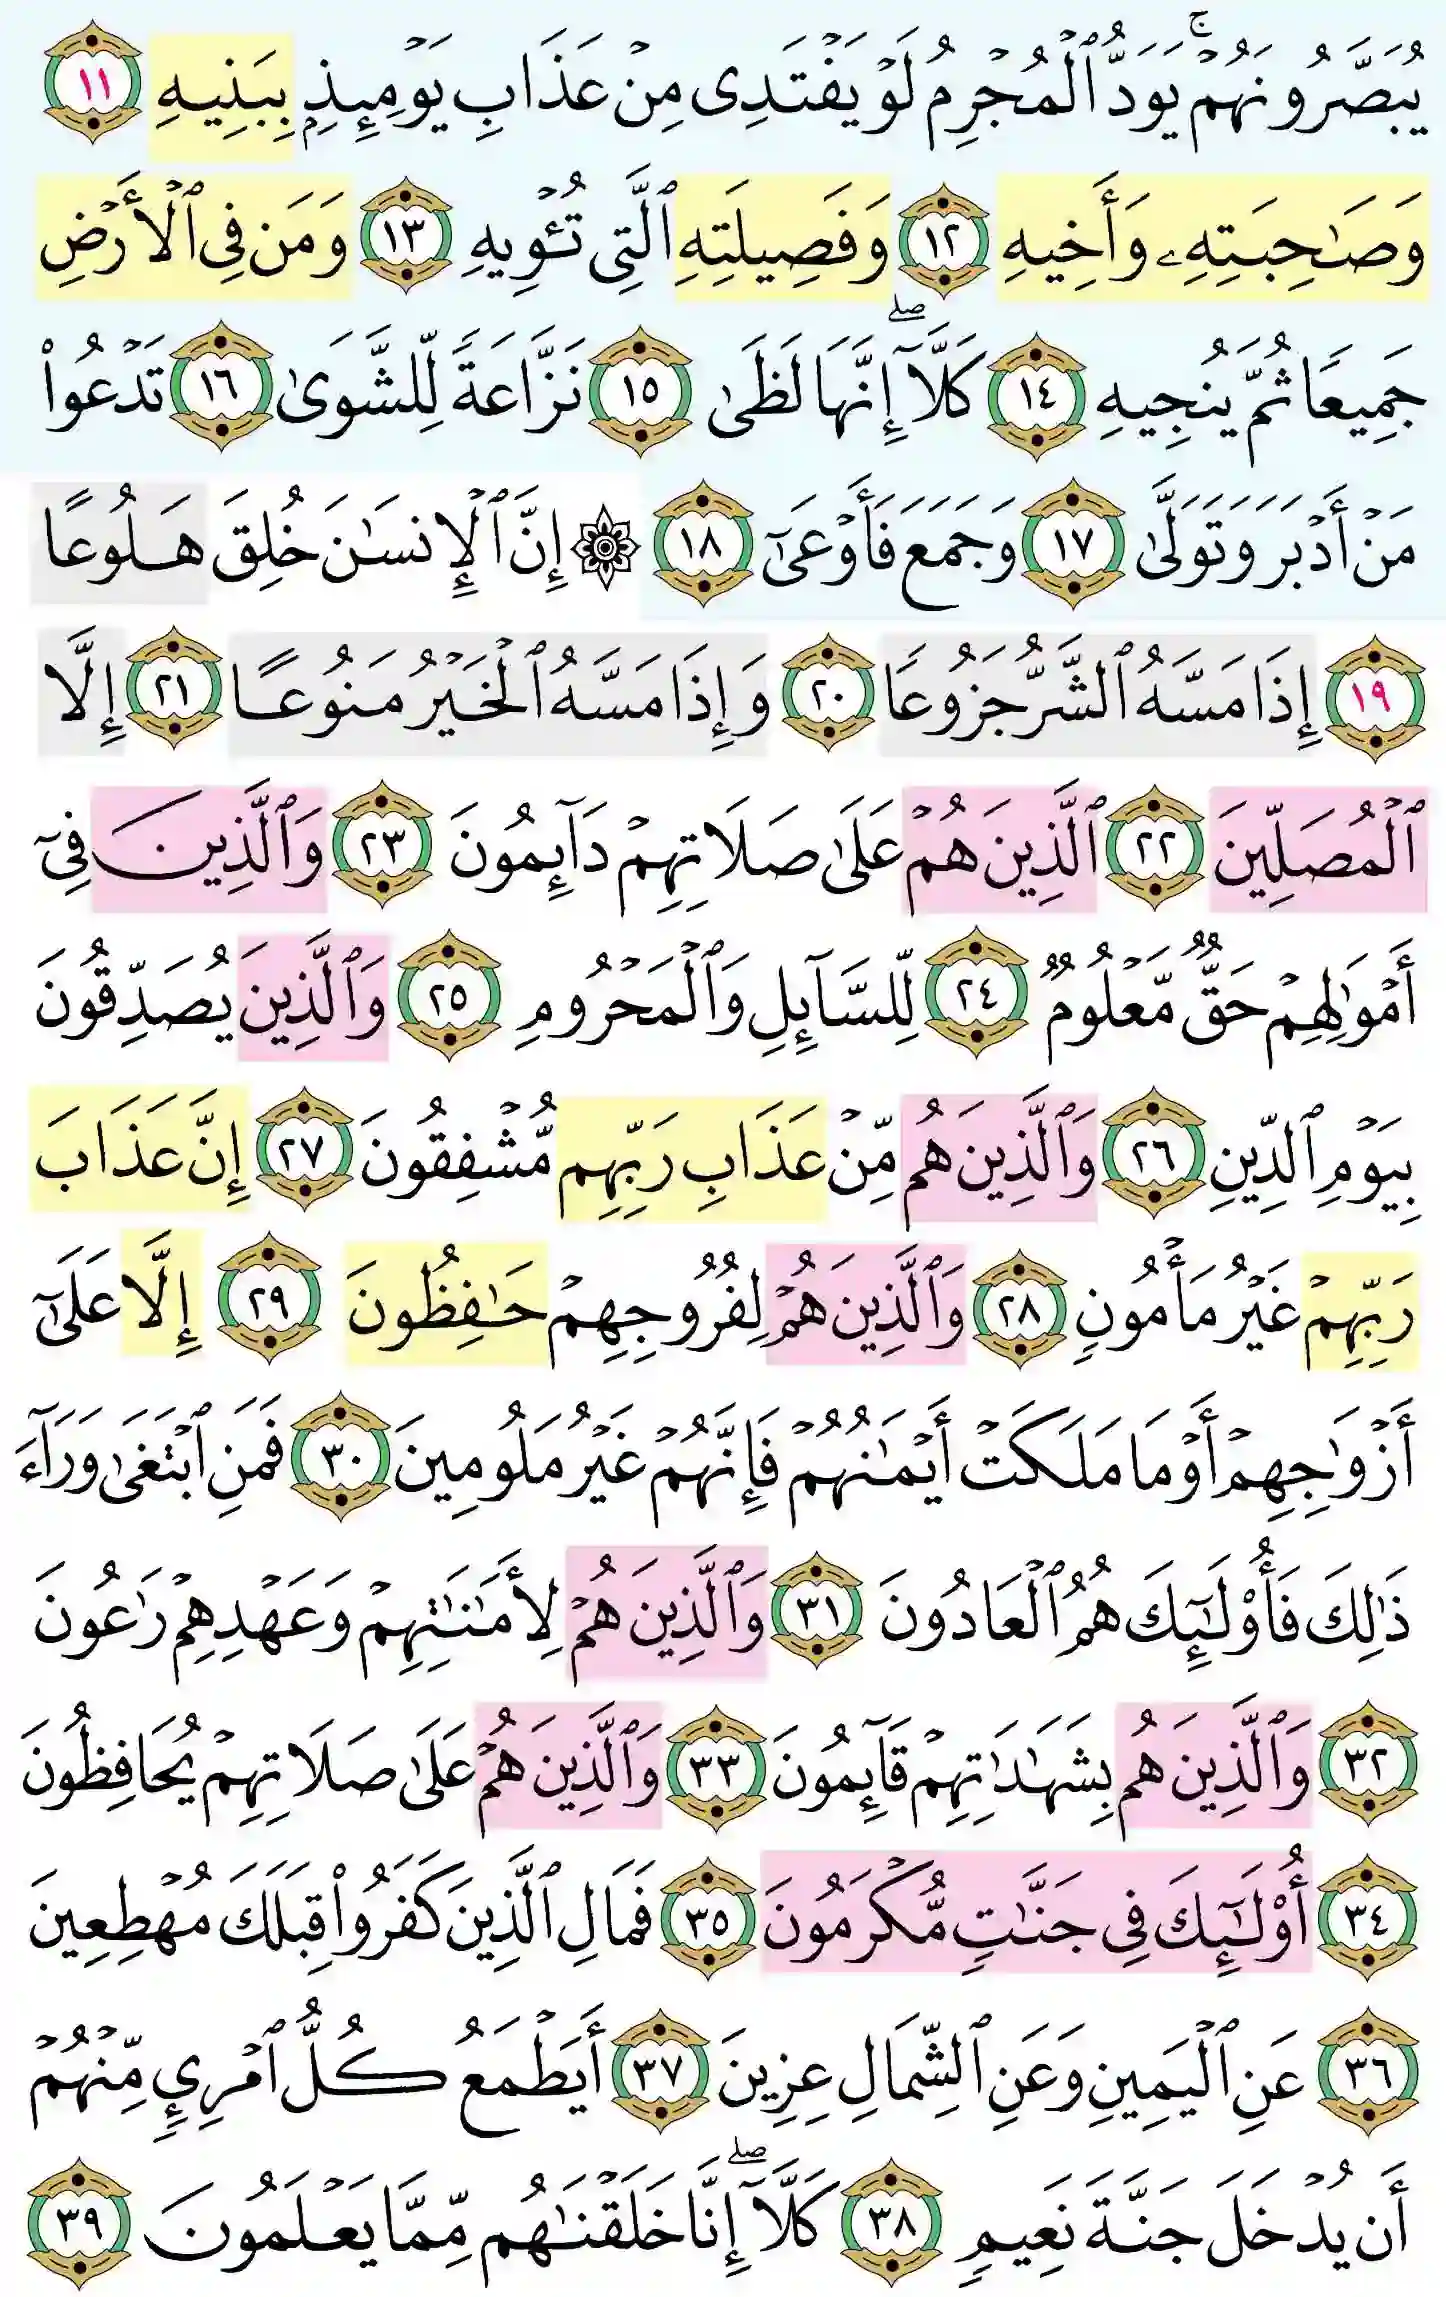 يُبَصَّرُونَهُمۡۚ يَوَدُّ ٱلۡمُجۡرِمُ لَوۡ يَفۡتَدِى مِنۡ عَذَابِ يَوۡمِئِذِۭ بِبَنِيهِ ١١
وَصَٰحِبَتِهِۦ وَأَخِيهِ ١٢ وَفَصِيلَتِهِ ٱلَّتِى تُـٔۡوِيهِ ١٣ وَمَن فِى ٱلۡأَرۡضِ
جَمِيعٗا ثُمَّ يُنجِيهِ ١٤ كَلَّآۖ إِنَّهَا لَظَىٰ ١٥ نَزَّاعَةٗ لِّلشَّوَىٰ ١٦ تَدۡعُواْ
مَنۡ أَدۡبَرَ وَتَوَلَّىٰ ١٧ وَجَمَعَ فَأَوۡعَىٰٓ ١٨ ۞ إِنَّ ٱلۡإِنسَٰنَ خُلِقَ هَلُوعًا
١٩ إِذَا مَسَّهُ ٱلشَّرُّ جَزُوعٗا ٢٠ وَإِذَا مَسَّهُ ٱلۡخَيۡرُ مَنُوعًا ٢١ إِلَّا
ٱلۡمُصَلِّينَ ٢٢ ٱلَّذِينَ هُمۡ عَلَىٰ صَلَاتِهِمۡ دَآئِمُونَ ٢٣ وَٱلَّذِينَ فِىٓ
أَمۡوَٰلِهِمۡ حَقّٞ مَّعۡلُومٞ ٢٤ لِّلسَّآئِلِ وَٱلۡمَحۡرُومِ ٢٥ وَٱلَّذِينَ يُصَدِّقُونَ
بِيَوۡمِ ٱلدِّينِ ٢٦ وَٱلَّذِينَ هُم مِّنۡ عَذَابِ رَبِّهِم مُّشۡفِقُونَ ٢٧ إِنَّ عَذَابَ
رَبِّهِمۡ غَيۡرُ مَأۡمُونٖ ٢٨ وَٱلَّذِينَ هُمۡ لِفُرُوجِهِمۡ حَٰفِظُونَ ٢٩ إِلَّا عَلَىٰٓ
أَزۡوَٰجِهِمۡ أَوۡ مَا مَلَكَتۡ أَيۡمَٰنُهُمۡ فَإِنَّهُمۡ غَيۡرُ مَلُومِينَ ٣٠ فَمَنِ ٱبۡتَغَىٰ وَرَآءَ
ذَٰلِكَ فَأُوْلَٰٓئِكَ هُمُ ٱلۡعَادُونَ ٣١ وَٱلَّذِينَ هُمۡ لِأَمَٰنَٰتِهِمۡ وَعَهۡدِهِمۡ رَٰعُونَ
٣٢ وَٱلَّذِينَ هُم بِشَهَٰدَٰتِهِمۡ قَآئِمُونَ ٣٣ وَٱلَّذِينَ هُمۡ عَلَىٰ صَلَاتِهِمۡ يُحَافِظُونَ
٣٤ أُوْلَٰٓئِكَ فِى جَنَّٰتٖ مُّكۡرَمُونَ ٣٥ فَمَالِ ٱلَّذِينَ كَفَرُواْ قِبَلَكَ مُهۡطِعِينَ
٣٦ عَنِ ٱلۡيَمِينِ وَعَنِ ٱلشِّمَالِ عِزِينَ ٣٧ أَيَطۡمَعُ كُلُّ ٱمۡرِيٕٖ مِّنۡهُمۡ
أَن يُدۡخَلَ جَنَّةَ نَعِيمٖ ٣٨ كَلَّآۖ إِنَّا خَلَقۡنَٰهُم مِّمَّا يَعۡلَمُونَ ٣٩